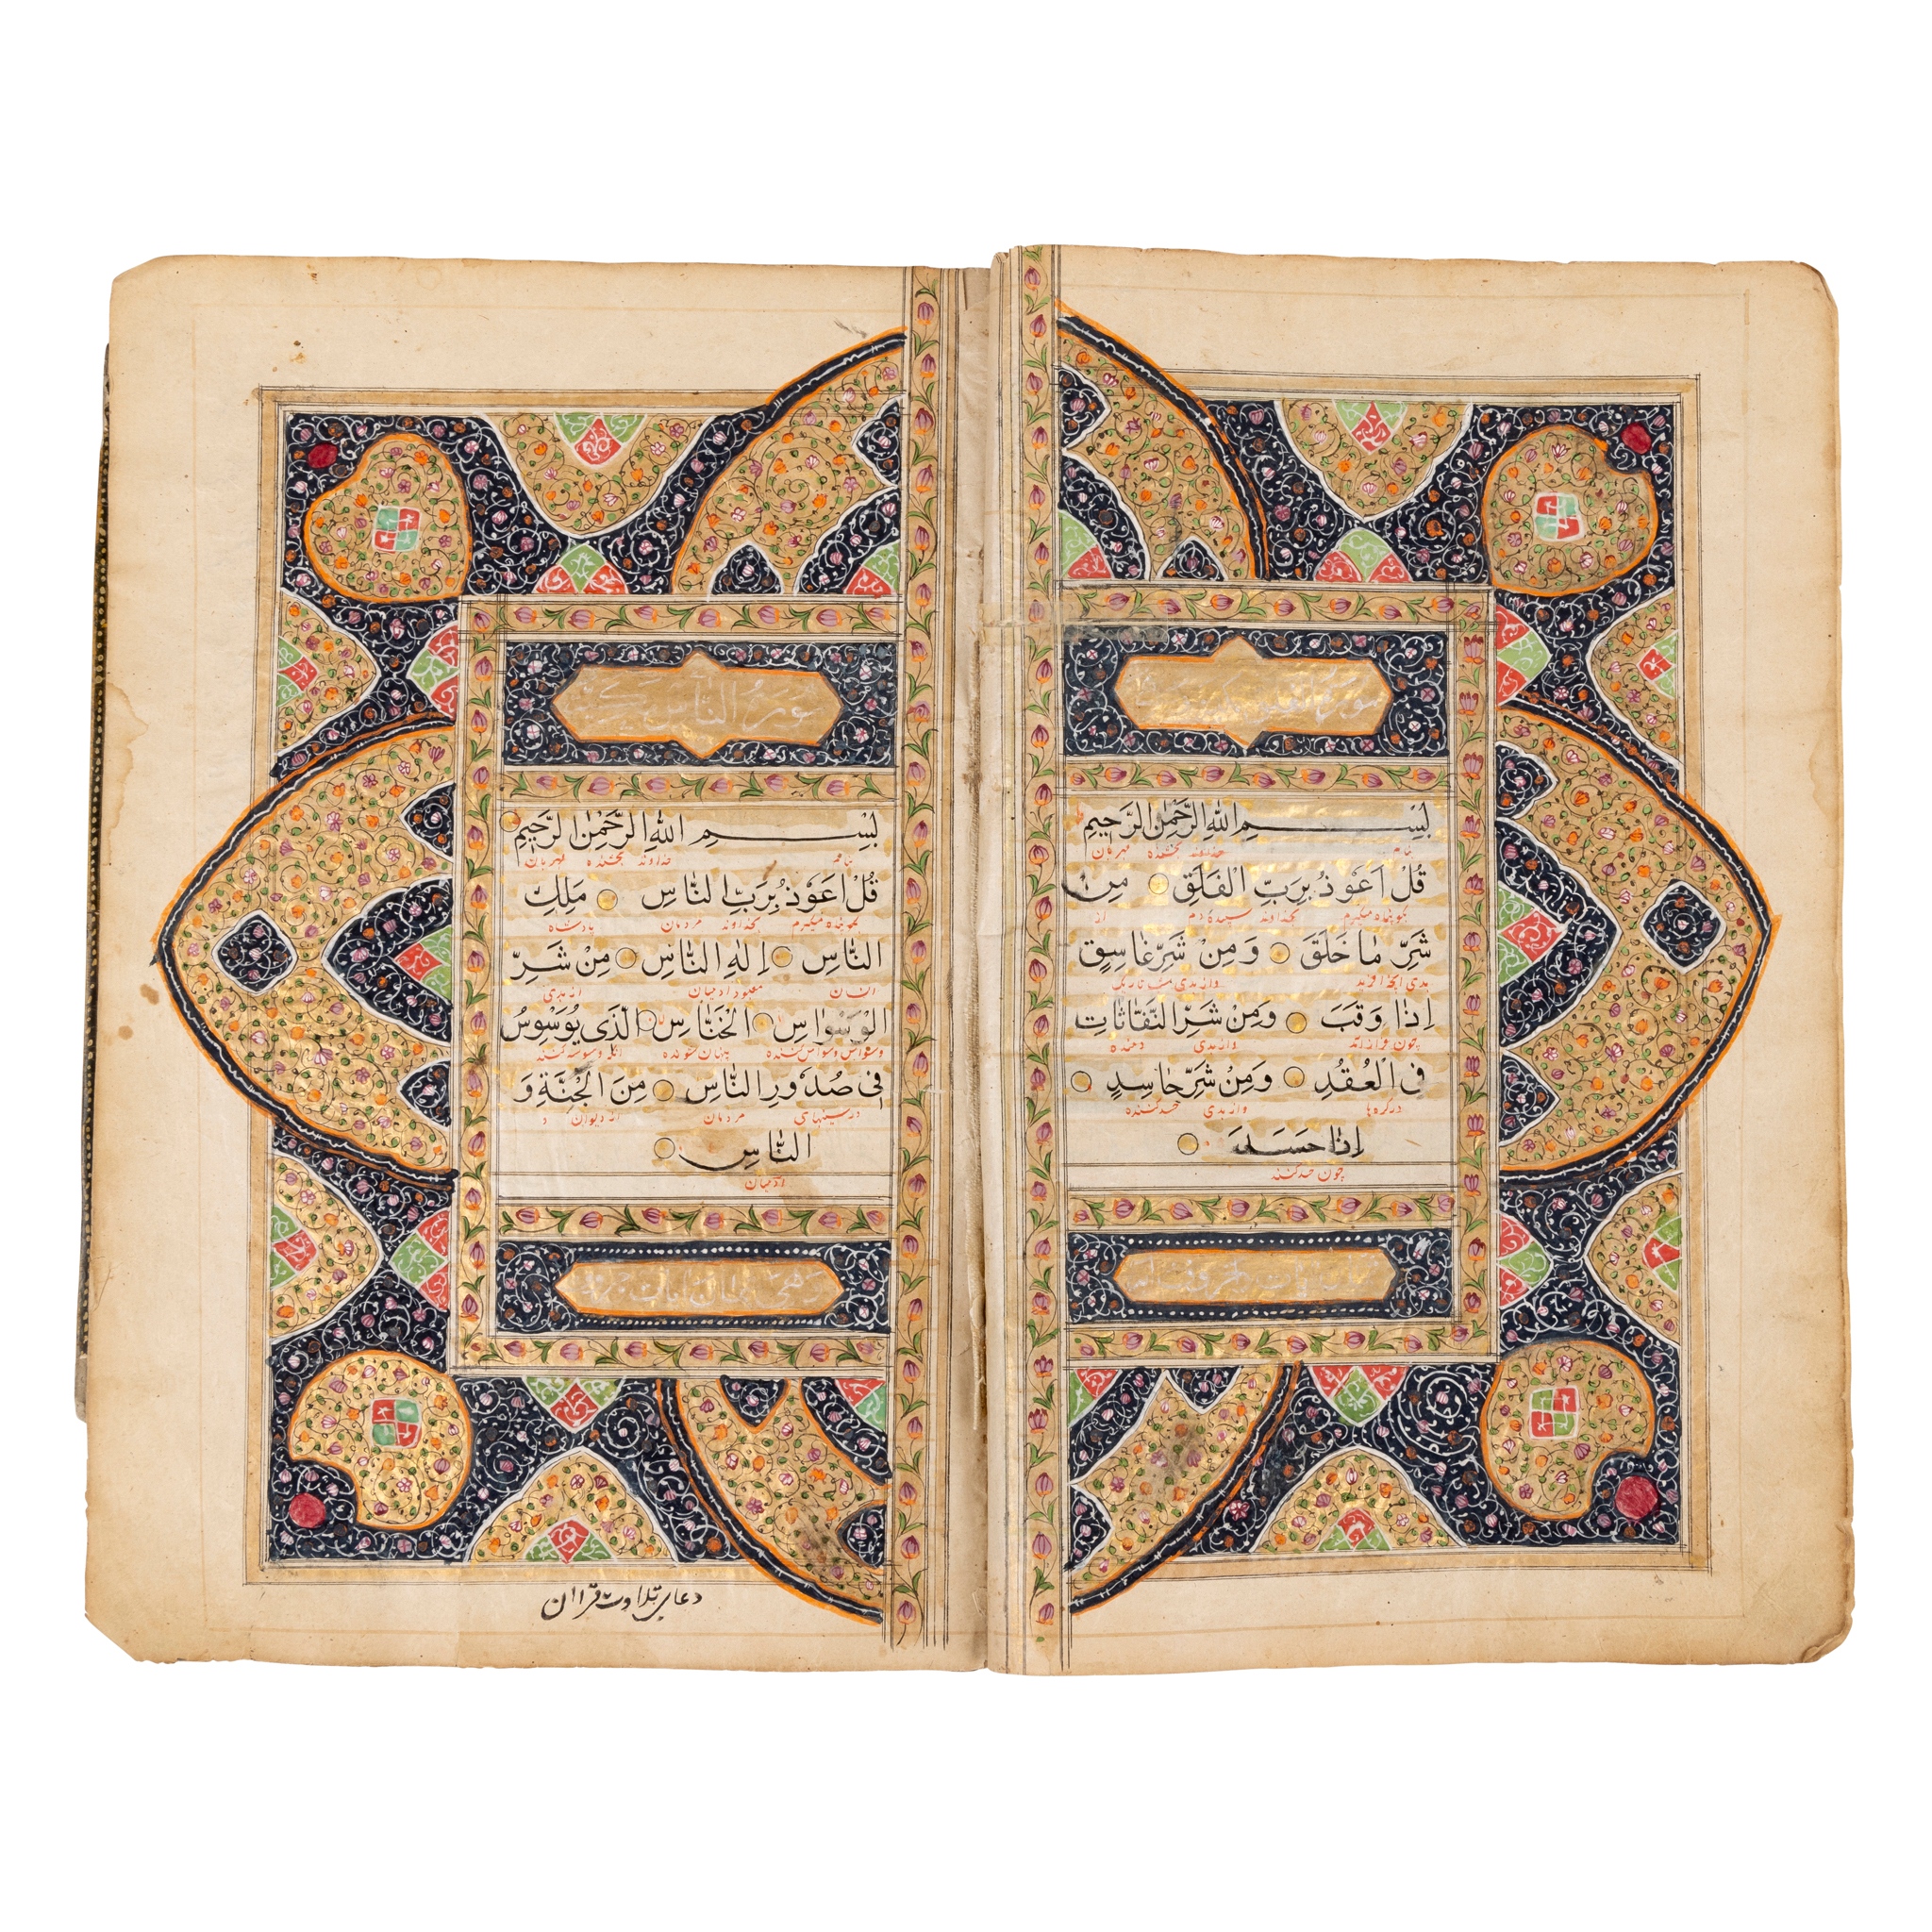 سورة الفلق
بِسْمِ اللهِ الرَّحْمٰنِ الرَّحِيمِ
بنام خداوند بخشنده مهربان
قُلْ اَعُوذُ بِرَبِّ الْفَلَقِ مِنْ
بگو پناه میگیرم بخداوند سپیده دم از
شَرِّ مَا خَلَقَ وَمِنْ شَرِّ غَاسِقٍ
بدی آنچه آفرید واز بدی شب تاریک
اِذَا وَقَبَ وَمِنْ شَرِّ النَّفَّاثَاتِ
چون واز بدی دمنده
فِي الْعُقَدِ وَمِنْ شَرِّ حَاسِدٍ
درگرهها واز بدی حسدکننده
اِذَا حَسَدَ
چون حسدکند
سورة الناس مكية
بِسْمِ اللهِ الرَّحْمٰنِ الرَّحِيمِ
بنام خداوند بخشنده مهربان
قُلْ اَعُوذُ بِرَبِّ النَّاسِ مَلِكِ
بگو پناه میگیرم بخداوند مردمان پادشاه
النَّاسِ اِلٰهِ النَّاسِ مِنْ شَرِّ
انسان معبود آدمیان از بدی
الْوَسْوَاسِ الْخَنَّاسِ الَّذِي يُوَسْوِسُ
وسواس وسواس کننده پنهان شونده آنکه وسوسه کننده
فِي صُدُورِ النَّاسِ مِنَ الْجِنَّةِ وَ
در سینهای مردمان از دیوان و
النَّاسِ
آدمیان
وهي ثمان ايات
دعای تلاوت قرآن